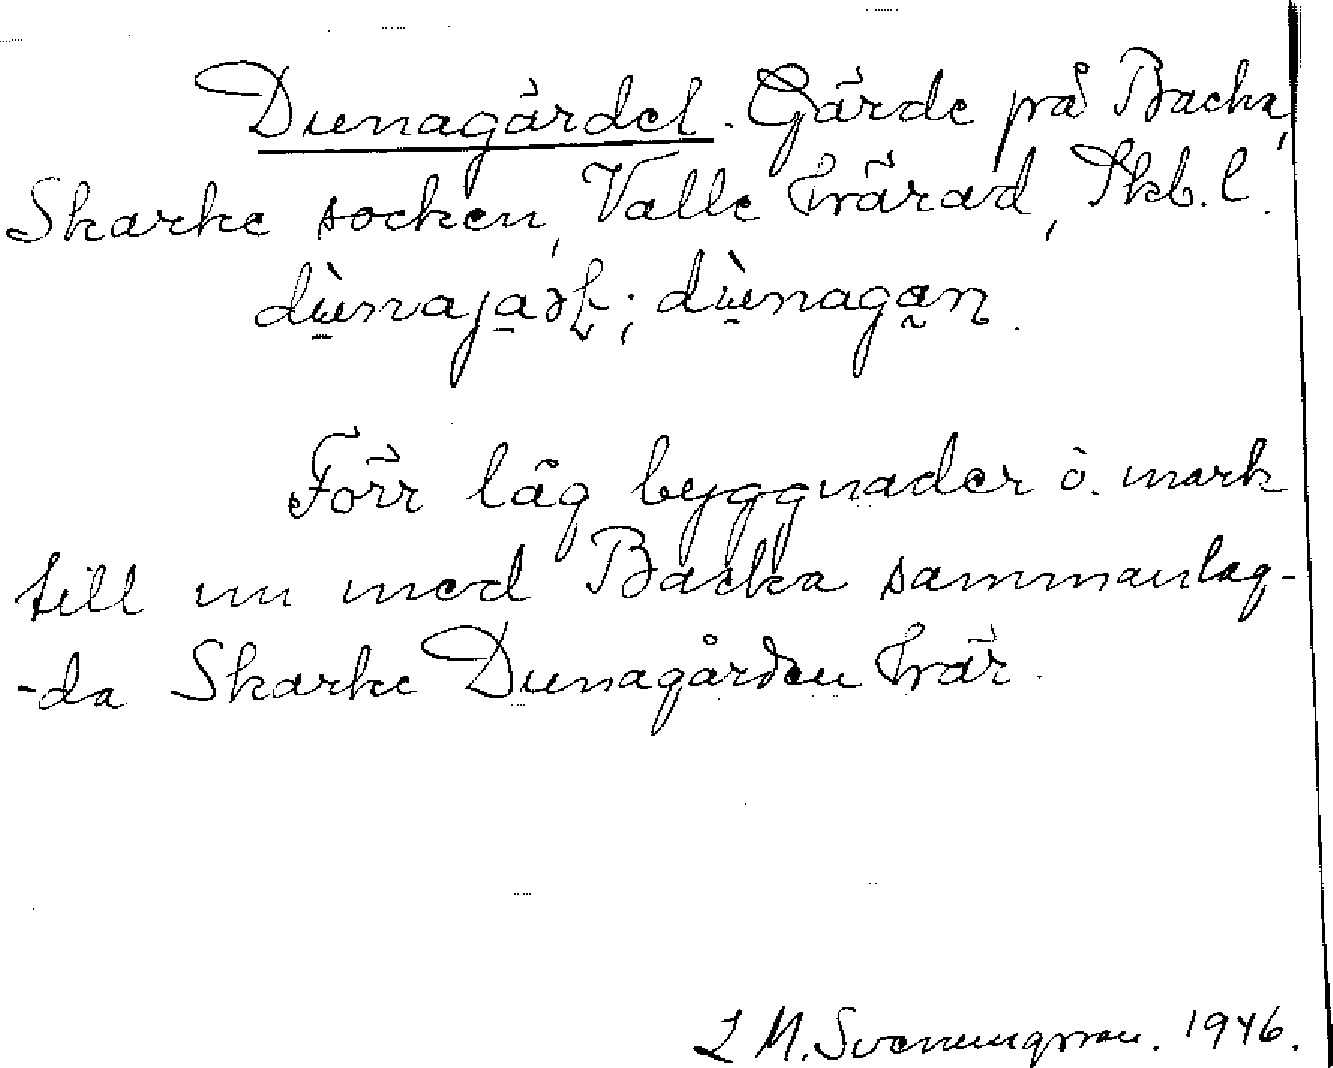 Dunagärdet. Gärde på Backa,
Skarke socken, Valle härad, Skb. l.
dùnajaṣt; dùnagan.
Förr låg byggnader o. mark
till nu med Backa sammanlag-
-da Skarke Dunagården här.
L M. Svenungsson. 1946.